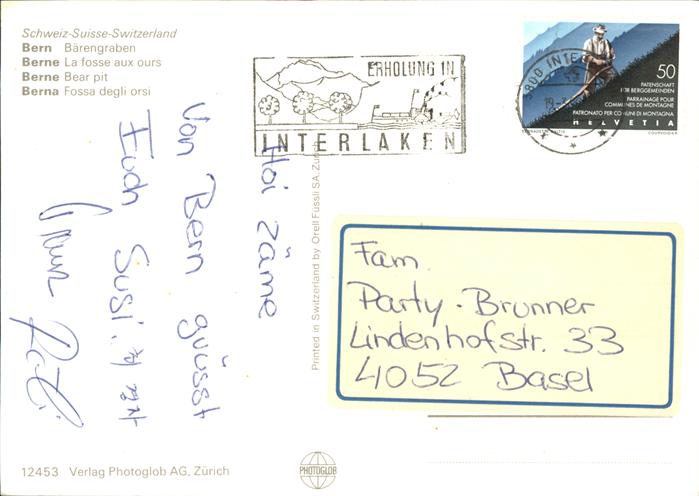 Schweiz-Suisse-Switzerland
Bern Bärengraben
Berne La fosse aux ours
Berne Bear pit
Berna Fossa degli orsi
ERHOLUNG IN
INTERLAKEN
50
PATENSCHAFT
FÜR BERGGEMEINDEN
PARRAINAGE POUR
COMMUNES DE MONTAGNE
PATRONATO PER COMUNI DI MONTAGNA
HELVETIA
COURVOISIER
Hoi zäme
Von Bern grüsst
Euch Susi.
Printed in Switzerland by Orell Füssli SA, Zürich
Fam.
Party-Brunner
Lindenhofstr. 33
4052 Basel
12453 Verlag Photoglob AG, Zürich
PHOTOGLOB